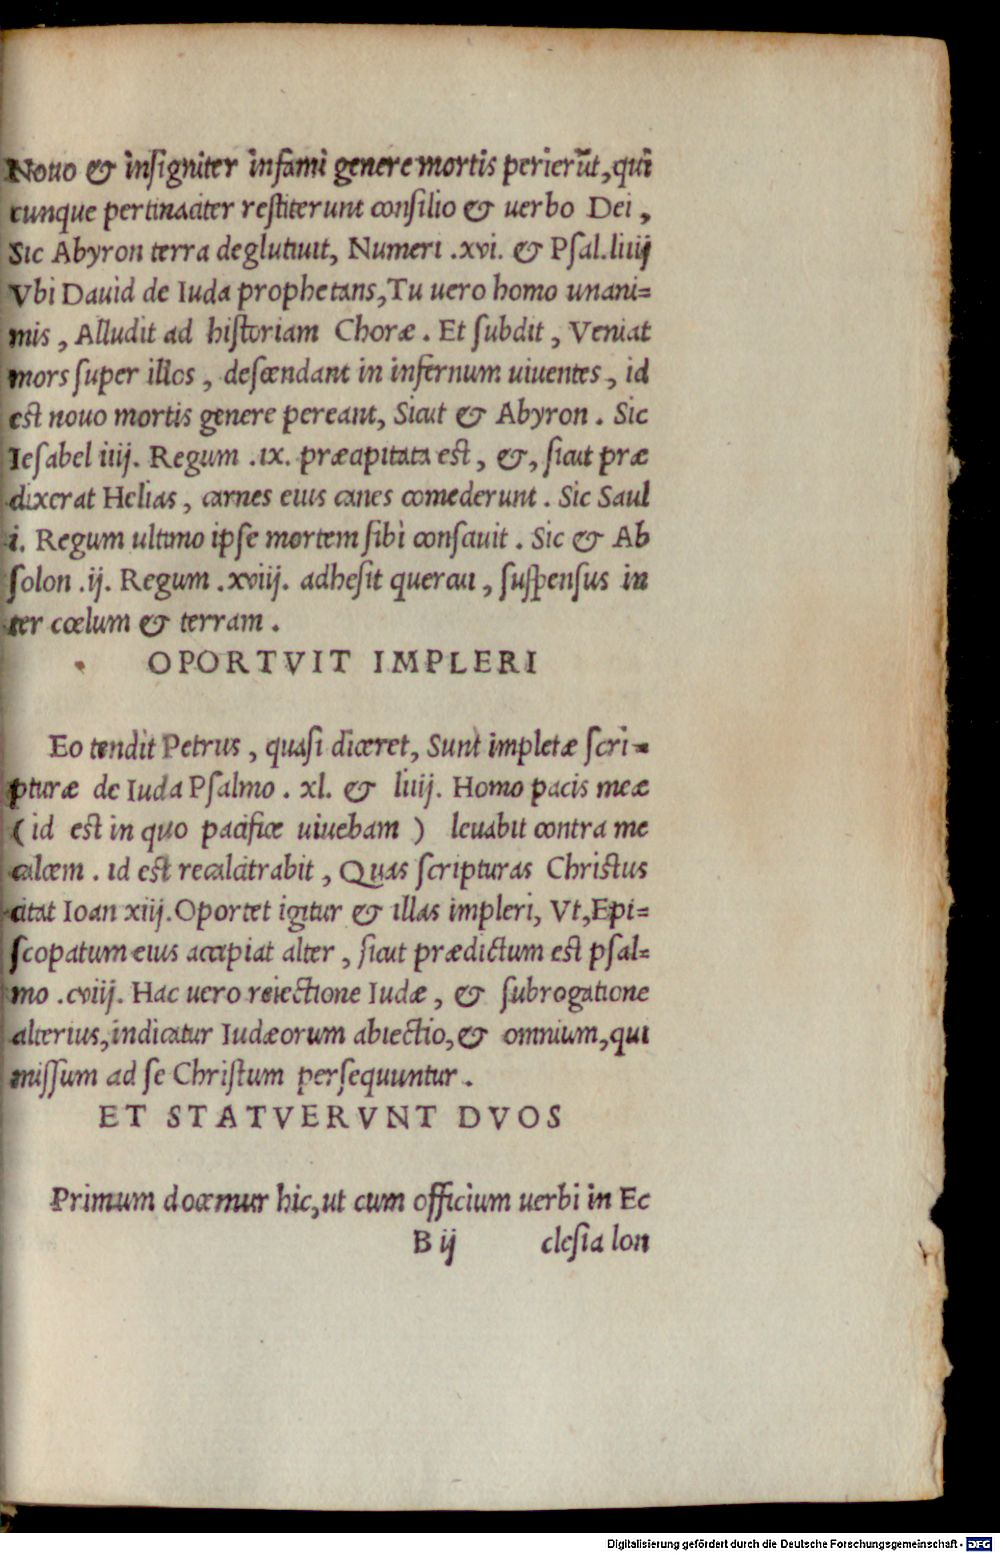 Nouo & insigniter infami genere mortis perierūt, qui
cunque pertinaciter restiterunt consilio & uerbo Dei,
Sic Abyron terra deglutiuit, Numeri .xvi. & Psal. liiij
Vbi Dauid de Iuda prophetans, Tu uero homo unani=
mis, Alludit ad historiam Choræ. Et subdit, Veniat
mors super illos, descendant in infernum uiuentes, id
est nouo mortis genere pereant, Sicut & Abyron. Sic
Iesabel iiij. Regum .ix. præcipitata est, &, sicut præ
dixerat Helias, carnes eius canes comederunt. Sic Saul
i. Regum ultimo ipse mortem sibi consciuit. Sic & Ab
solon .ij. Regum .xviij. adhesit quercui, suspensus in
ter cœlum & terram.
OPORTVIT IMPLERI
Eo tendit Petrus, quasi diceret, Sunt impletæ scri=
pturæ de Iuda Psalmo. xl. & liiij. Homo pacis meæ
(id est in quo pacifice uiuebam) leuabit contra me
calcem. id est recalcitrabit, Quas scripturas Christus
citat Ioan xiij. Oportet igitur & illas impleri, Vt, Epi=
scopatum eius accipiat alter, sicut prædictum est psal=
mo .cviij. Hac uero reiectione Iudæ, & subrogatione
alterius, indicatur Iudæorum abiectio, & omnium, qui
missum ad se Christum persequuntur.
ET STATVERVNT DVOS
Primum docemur hic, ut cum officium uerbi in Ec
B ij clesia lon
Digitalisierung gefördert durch die Deutsche Forschungsgemeinschaft - DFG